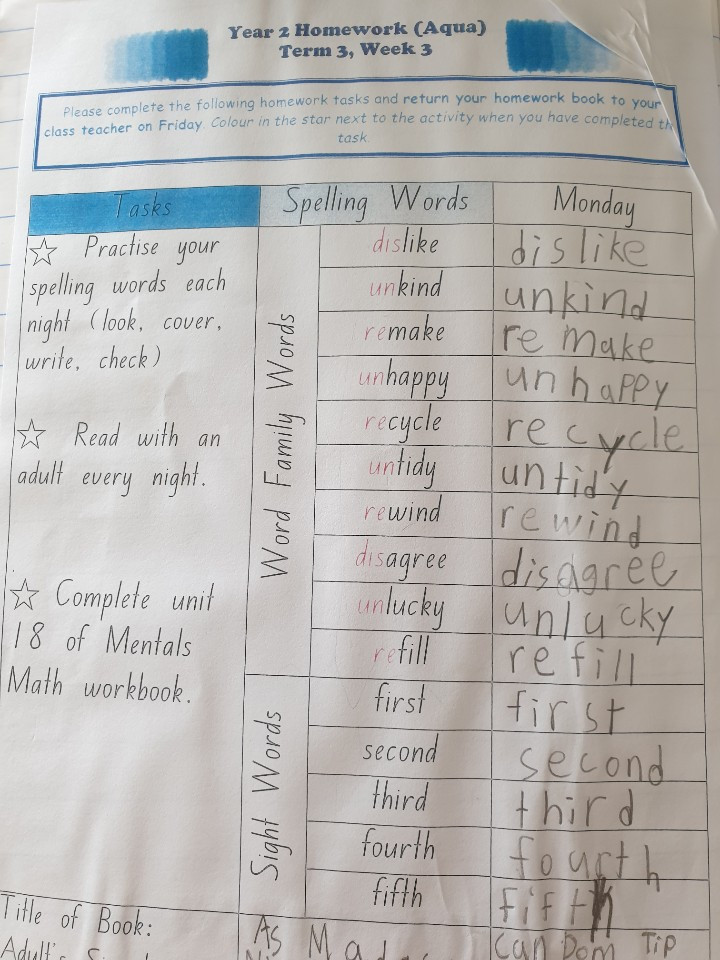 Year 2 Homework (Aqua)
Term 3, Week 3
Please complete the following homework tasks and return your homework book to your
class teacher on Friday. Colour in the star next to the activity when you have completed th
task.
Tasks
Spelling Words
Monday
Practise your
spelling words each
night (look, cover,
write, check)
Read with an
adult every night.
Complete unit
18 of Mentals
Math workbook.
Word Family Words
dislike dislike
unkind unkind
remake remake
unhappy unhappy
recycle recycle
untidy untidy
rewind rewind
disagree disagree
unlucky unlucky
refill refill
Sight Words
first first
second second
third third
fourth fourth
fifth fifth
Title of Book:
As
Can Dom Tip
Adult's